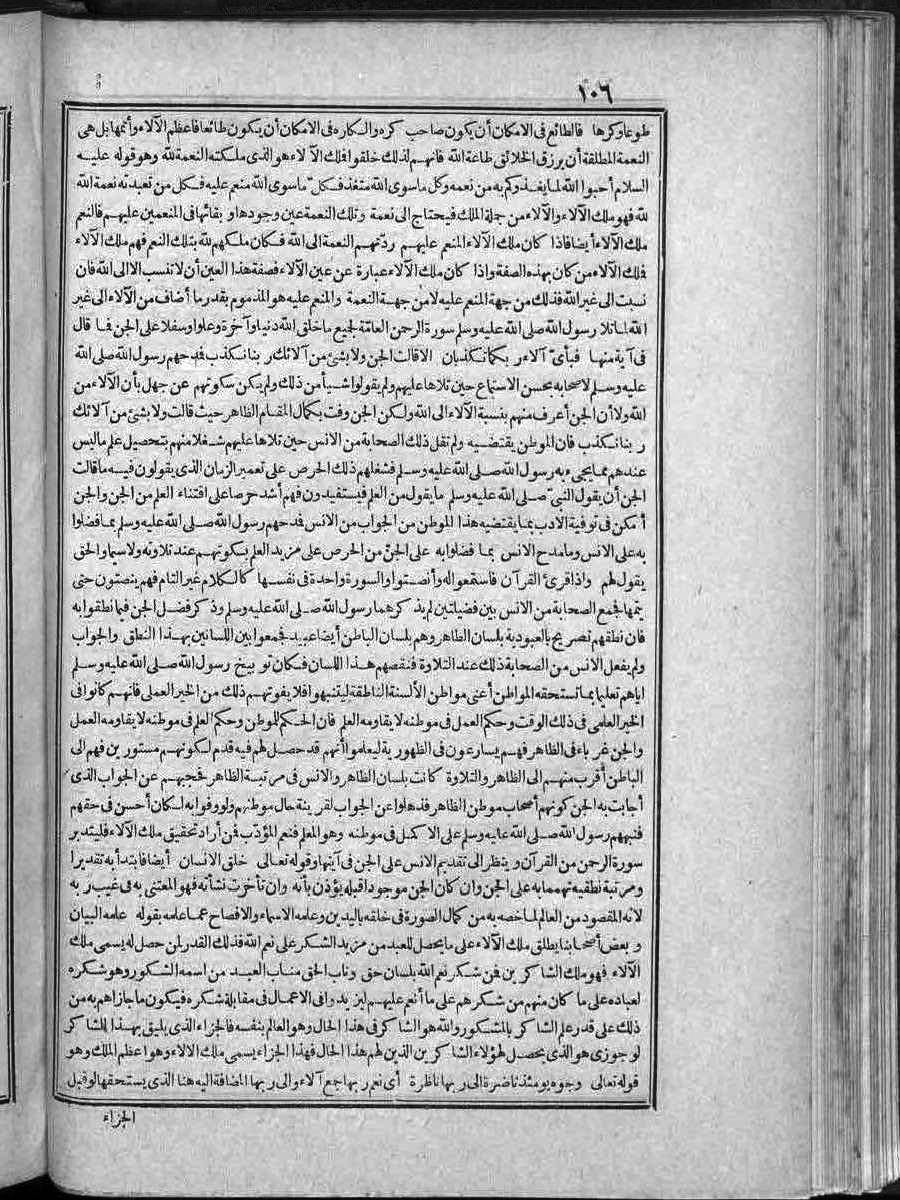 ١٠٦
طوعا وكرها فالطائع فى الامكان أن يكون صاحب كره والكاره فى الامكان أن يكون طائعا فاعظم الآلاء وأتمها بل هى
النعمة المطلقة أن يرزق الخلائق طاعة الله فانهم لذلك خلقوا فلك الآلاء هو الذى ملكته النعمة لله وهو قوله عليه
السلام أحبوا الله لما يغذوكم به من نعمه وكل ما سوى الله متغذ فكل ما سوى الله منعم عليه فكل من تعبدته نعمة الله
لله فهو ملك الآلاء والآلاء من جملة الملك فيحتاج الى نعمة وتلك النعمة عين وجودها وبقائها فى المنعمين عليهم فالنعم
ملك الآلاء أيضا فاذا كان ملك الآلاء المنعم عليهم ردّتهم النعمة الى الله فكان ملكهم لله بتلك النعم فهم ملك الآلاء
فلك الآلاء من كان بهذه الصفة واذا كان ملك الآلاء عبارة عن عين الآلاء فصفة هذا العين أن لا تنسب الا الى الله فان
نسبت الى غير الله فذلك من جهة المنعم عليه لا من جهة النعمة والمنعم عليه هو المذموم بقدر ما أضاف من الآلاء الى غير
الله لما تلا رسول الله صلى الله عليه وسلم سورة الرحمن العامّة لجميع ما خلق الله دنيا وآخرة وعلوا وسفلا على الجن فما قال
فى آية منها فبأىّ آلاء ربكما تكذبان الا قالت الجن ولا بشئ من آلائك ربنا نكذب فدحهم رسول الله صلى الله
عليه وسلم لاصحابه بحسن الاستماع حين تلاها عليهم ولم يقولوا شيأ من ذلك ولم يكن سكوتهم عن جهل بأن الآلاء من
الله ولا أن الجن أعرف منهم بنسبة الآلاء الى الله ولكن الجن وفت بكمال المقام الظاهر حيث قالت ولا بشئ من آلائك
ربنا نكذب فان الموطن يقتضيه ولم تقل ذلك الصحابة من الانس حين تلاها عليهم شغلا منهم بتحصيل علم ما ليس
عندهم مما يجىء به رسول الله صلى الله عليه وسلم فشغلهم ذلك الحرص على تعمير الزمان الذى يقولون فيه ما قالت
الجن أن يقول النبىّ صلى الله عليه وسلم ما يقول من العلم فيستفيدون فهم أشد حرصا على اقتناء العلم من الجن والجن
أمكن فى توفية الادب بما يقتضيه هذا الموطن من الجواب من الانس فدحهم رسول الله صلى الله عليه وسلم بما فضلوا
به على الانس وما مدح الانس بما فضلوا به على الجنّ من الحرص على مزيد العلم بسكوتهم عند تلاوته ولاسيما والحق
يقول لهم واذا قرئ القرآن فاستمعوا له وأنصتوا والسورة واحدة فى نفسها كالكلام غير التام فهم ينصتون حتى
يتمها فجمع الصحابة من الانس بين فضيلتين لم يذكرهما رسول الله صلى الله عليه وسلم وذكر فضل الجن فيما نطقوا به
فان نطقهم تصريح بالعبودية بلسان الظاهر وهم بلسان الباطن أيضا عبيد فجمعوا بين اللسانين بهذا النطق والجواب
ولم يفعل الانس من الصحابة ذلك عند التلاوة فنقصهم هذا اللسان فكان توبيخ رسول الله صلى الله عليه وسلم
اياهم تعليما بما تستحقه المواطن أعنى مواطن الألسنة الناطقة ليتنبهوا فلا يفوتهم ذلك من الخير العملى فانهم كانوا فى
الخير العلمى فى ذلك الوقت وحكم العمل فى موطنه لا يقاومه العلم فان الحكم للموطن وحكم العلم فى موطنه لا يقاومه العمل
والجن غرباء فى الظاهر فهم يسارعون فى الظهور به ليعلموا أنهم قد حصل لهم فيه قدم لكونهم مستورين فهم الى
الباطن أقرب منهم الى الظاهر والتلاوة كانت بلسان الظاهر والانس فى مرتبة الظاهر فحجبهم عن الجواب الذى
أجابت به الجن كونهم أصحاب موطن الظاهر فذهلوا عن الجواب لقرينة حال موطنهم ولو وفوا به لكان أحسن فى حقهم
فنبههم رسول الله صلى الله عليه وسلم على الاكمل فى موطنه وهو المعلم فنعم المؤدّب فمن أراد تحقيق ملك الآلاء فليتدبر
سورة الرحمن من القرآن وينظر الى تقديم الانس على الجن فى آيتها وقوله تعالى خلق الانسان أيضا فابتدأ به تقديرا
ومرتبة نطقيه تهمما به على الجن وان كان الجن موجودا قبله يؤذن بأنه وان تأخرت نشأته فهو المعتنى به فى غيب ربه
لانه المقصود من العالم لما خصه به من كمال الصورة فى خلقه باليدين وعلمه الاسماء والافصاح عما علمه بقوله علمه البيان
وبعض أصحابنا يطلق ملك الآلاء على ما يحصل للعبد من مزيد الشكر على نعم الله فذلك القدر لمن حصل له يسمى ملك
الآلاء فهو ملك الشاكرين فمن شكر نعم الله بلسان حق وناب الحق مناب العبد من اسمه الشكور وهو شكره
لعباده على ما كان منهم من شكرهم على ما أنعم عليهم ليزيدوا فى الاعمال فى مقابلة شكره فيكون ما جازاهم به من
ذلك على قدر علم الشاكر بالمشكور والله هو الشاكر فى هذا الحال وهو العالم بنفسه فالجزاء الذى يليق بهذا المشاكر
لو جوزى هو الذى يحصل لهؤلاء الشاكرين الذين لهم هذا الحال فهذا الجزاء يسمى ملك الالاء وهو أعظم الملك وهو
قوله تعالى وجوه يومئذ ناضرة الى ربها ناظرة أى نعم ربها جمع آلاء والى ربها المضافة اليه هنا الذى يستحقها لو قبل
الجزاء